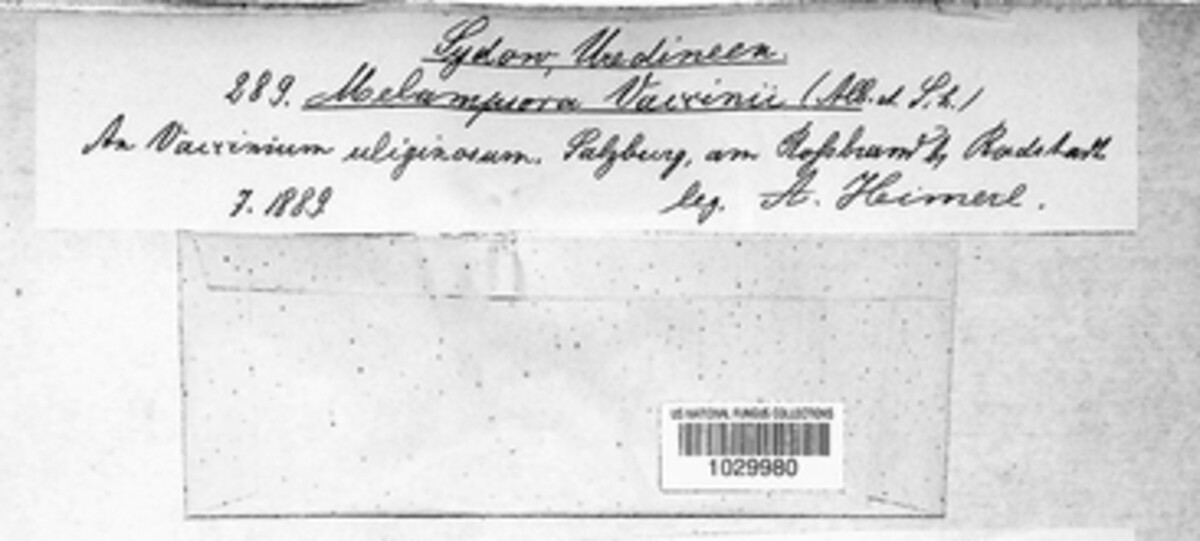 Sydow, Uredineen.
289. Melampsora Vaccinii (Alb. et S.)
An Vaccinium uliginosum. Salzburg, am Roßbrand b. Radstadt
7. 1889 leg. A. Heimerl.
US NATIONAL FUNGUS COLLECTIONS
1029980